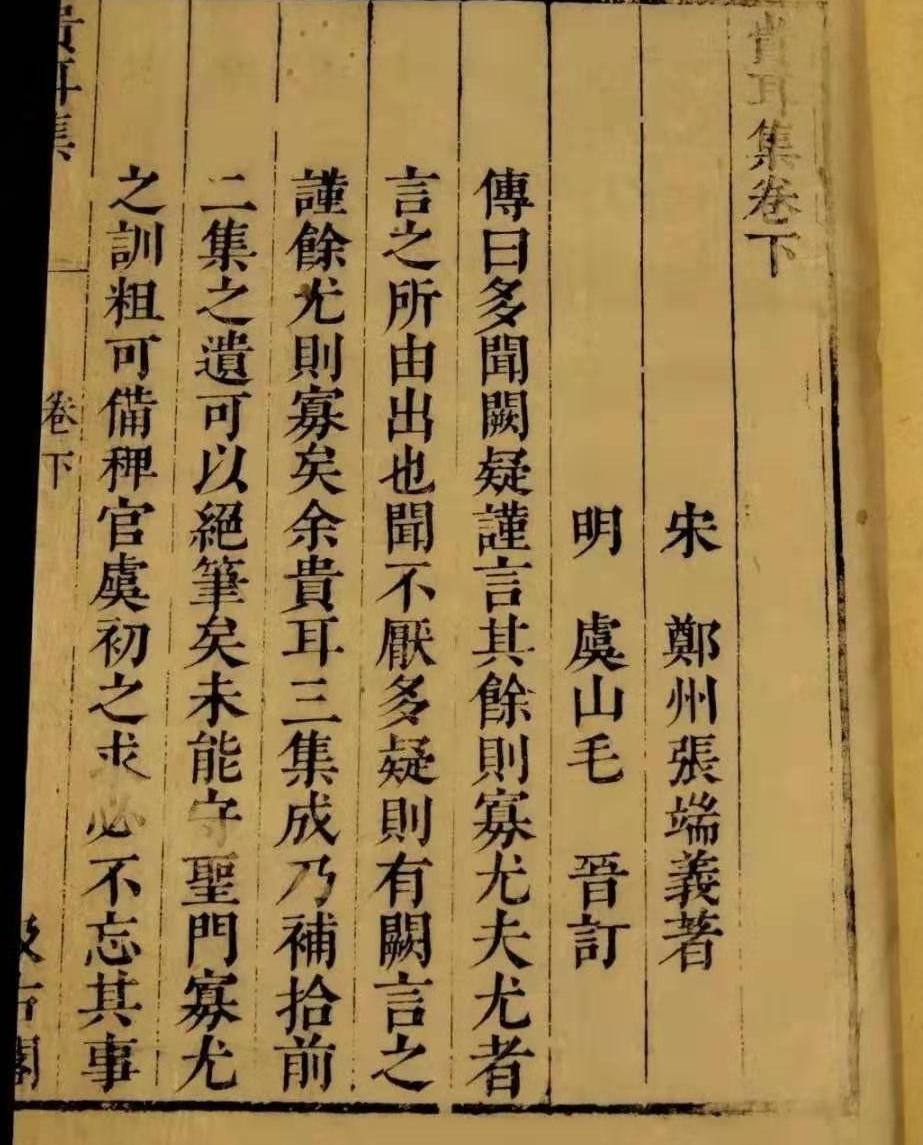 貴耳集卷下
宋　鄭州張端義著
明　虞山毛　晉訂
傳曰多聞闕疑謹言其餘則寡尤夫尤者
言之所由出也聞不厭多疑則有闕言之
謹餘尤則寡矣余貴耳三集成乃補拾前
二集之遺可以絕筆矣未能守聖門寡尤
之訓粗可備稗官虞初之求必不忘其事
貴耳集　卷下　一　汲古閣